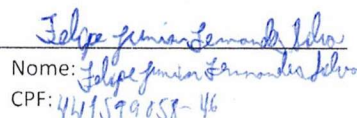 Felipe Junior Fernandes Silva
Nome: Felipe Junior Fernandes Silva
CPF: 441599058-46